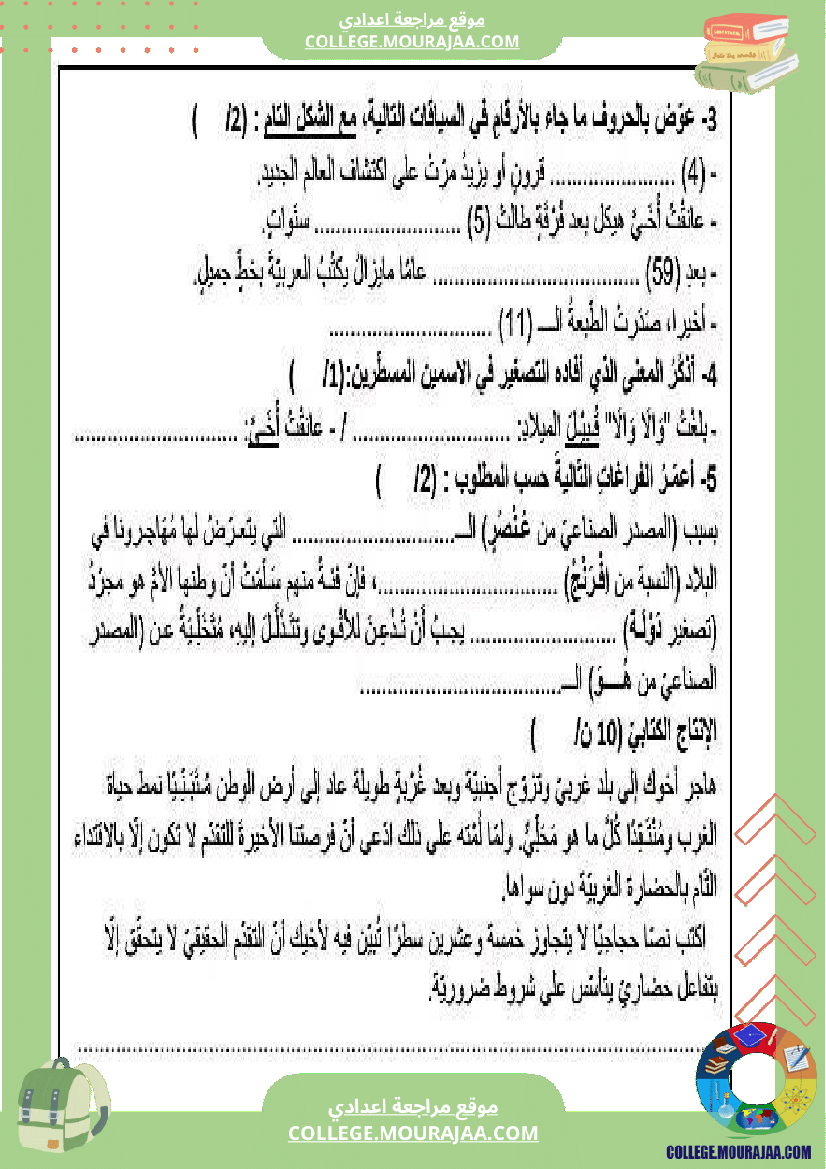 موقع مراجعة اعدادي
COLLEGE.MOURAJAA.COM
3- عوّض بالحروف ما جاء بالأرقام في السياقات التالية، مع الشكل التام : (2/ )
- (4) ........................ قرونٍ أو يزيدُ مرّتْ على اكتشاف العالم الجديد.
- عانقْتُ أُخَيَّ هيكل بعد فُرْقَةٍ طالتْ (5) ............................ سنواتٍ.
- بعدِ (59) ....................................... عامًا مايزالُ يكتُبُ العربيّةَ بخطٍّ جميلٍ.
- أخيرا، صدَرتْ الطّبعةُ الـــ (11) ...............................
4- أذْكُرُ المعنى الذي أفاده التصغير في الاسمين المسطّرين:(1/ )
- بلغْتُ "وَالَا وَالَا" قُبيْلَ الميلادِ: .............................. / - عانقْتُ أُخَيَّ: ...............................
5- أعمّرُ الفراغاتِ التّاليةَ حسب المطلوب : (2/ )
بسبب (المصدر الصناعيّ من عُنْصُرٍ) الـــ............................... التي يتعرّضُ لها مُهَاجرونا في
البلاد (النسبة من إفْرَنْجُ) ..................................، فإنّ فئةً منهم سَلّمَتْ أنّ وطنها الأمّ هو مجرّدُ
(تصغير دَوْلَة) ............................ يجبُ أنْ تُذْعِنَ للأقْوى وتتَذَلَّلَ إليهِ، مُتَخَلِّيَةً عن (المصدر
الصناعيّ من هُـــوَ) الـــ......................................
الإنتاج الكتابيّ (10 ن/ )
هاجر أخوك إلى بلد غربيّ وتزوّج أجنبيّة وبعد غُرْبةٍ طويلة عاد إلى أرض الوطن مُتَبَنِّيًا نمط حياة
الغرب ومُنْتَقِدًا كُلَّ ما هو مَحَلِّيٌّ. ولمّا لُمْتَه على ذلك ادّعى أنّ فرصتنا الأخيرةَ للتقدّم لا تكون إلّا بالاقتداء
التّام بالحضارة الغربيّة دون سواها.
اكتب نصّا حجاجيّا لا يتجاوز خمسة وعشرين سطرًا تُبيّن فيه لأخيك أنّ التقدّم الحقيقيّ لا يتحقّق إلّا
بتفاعل حضاريّ يتأسّس على شروط ضروريّة.
................................................................................................................
موقع مراجعة اعدادي
COLLEGE.MOURAJAA.COM
COLLEGE.MOURAJAA.COM